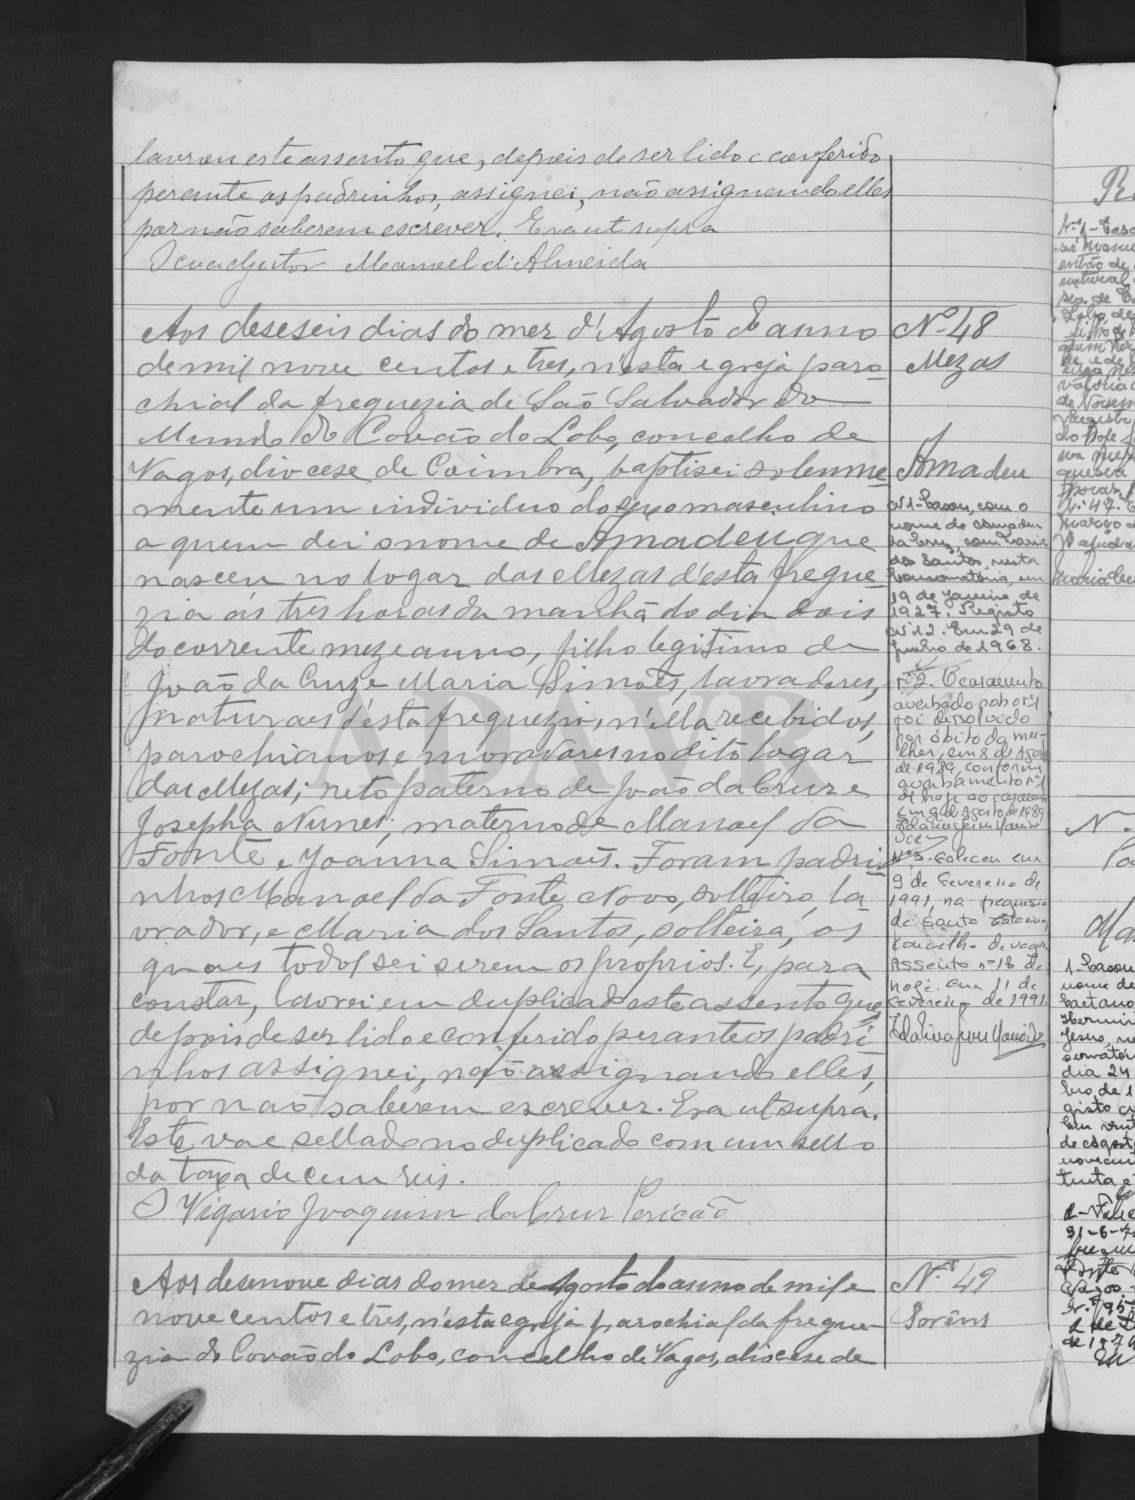 lavrou este assento que, depois de ser lido e conferido
perante os padrinhos, assignei, não assignando elles
por não saberem escrever. Era ut supra
O coadjutor Manoel d'Almeida
Aos deseseis dias do mez d'Agosto do anno
de mil nove centos e tres, n'esta egreja paro-
chial da freguezia de São Salvador do
Mundo do Covão do Lobo, concelho de
Vagos, diocese de Coimbra, baptisei solemne-
mente um individuo do sexo masculino
a quem dei o nome de Amadeu que
nasceu no logar das Mezas d'esta fregue-
zia ás tres horas da manhã do dia dois
do corrente mez e anno, filho legitimo de
João da Cruz e Maria Simões, lavradores,
naturaes d'esta freguezia, n'ella recebidos,
parochianos e moradores no dito logar
das Mezas; neto paterno de João da Cruz e
Josepha Nunes, materno de Manoel da
Fonte e Joanna Simões. Foram padri-
nhos Manoel da Fonte Novo, solteiro, la-
vrador, e Maria dos Santos, solteira, os
quaes todos sei serem os proprios. E, para
constar, lavrei em duplicado este assento que,
depois de ser lido e conferido perante os padri-
nhos assignei, não assignando elles,
por não saberem escrever. Era ut supra.
Este vae sellado no duplicado com um sello
da taxa de cem reis.
O Vigario Joaquim da Cruz Pericão
Nº 48
Mezas
Amadeu
Nº 1 - Casou, com o
nome de Amadeu
da Cruz, com Maria
dos Santos, nesta
Conservatória, em
19 de Janeiro de
1927. Registo
Nº 12. Em 29 de
Junho de 1968.
Nº 2. O casamento
averbado sob o nº 1
foi dissolvido
por óbito da mu-
lher, em 8 de Agosto
de 1989, conforme
averbamento nº 1
de hoje ao casamento
Em 9 de Agosto de 1989
Nº 3. Faleceu em
9 de Fevereiro de
1991, na freguesia
de Santa Catarina,
concelho de Vagos.
Assento nº 18 de
hoje. Em 11 de
Fevereiro de 1991.
Aos desenove dias do mez de Agosto do anno de mil e
nove centos e tres, n'esta egreja parochial da fregue-
zia do Covão do Lobo, concelho de Vagos, diocese de
Nº 49
Sorêns
ADAVR